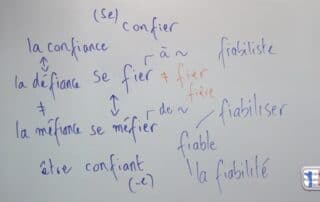 (se) confier
la confiance
à ~
fiabiliste
↕
la défiance se fier ≠ fier
fière
≠
↕
de ~
fiabiliser
la méfiance se méfier
fiable
être confiant
(-e)
la fiabilité